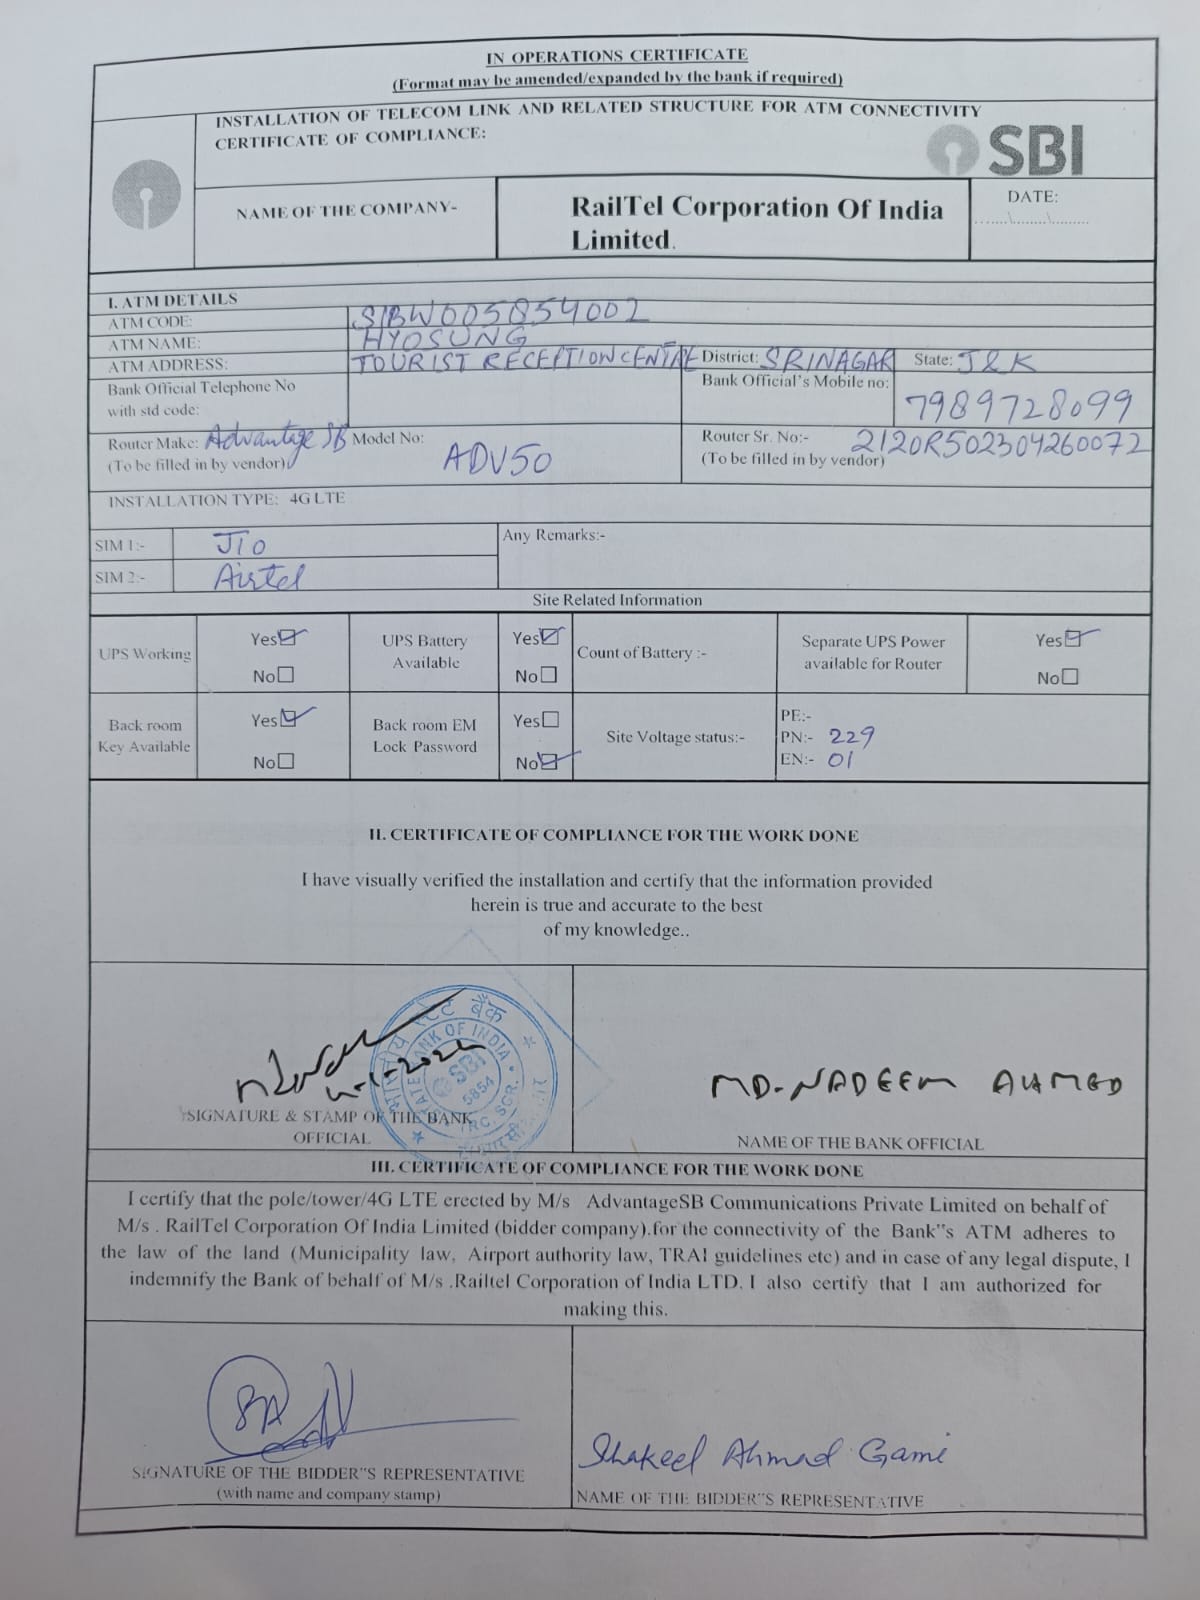 IN OPERATIONS CERTIFICATE
(Format may be amended/expanded by the bank if required)
INSTALLATION OF TELECOM LINK AND RELATED STRUCTURE FOR ATM CONNECTIVITY
CERTIFICATE OF COMPLIANCE:
SBI
NAME OF THE COMPANY-
RailTel Corporation Of India
Limited.
DATE:
I. ATM DETAILS
ATM CODE: S1BW005854002
ATM NAME: HYOSUNG
ATM ADDRESS: TOURIST RECEPTION CENTRE District: SRINAGAR State: J&K
Bank Official Telephone No
with std code:
Bank Official's Mobile no: 7989728099
Router Make: Advantage SB Model No: ADV50
(To be filled in by vendor)
Router Sr. No:- 2120R502304260072
(To be filled in by vendor)
INSTALLATION TYPE: 4G LTE
SIM 1:- JIO
SIM 2:- Airtel
Any Remarks:-
Site Related Information
UPS Working Yes No
UPS Battery Available Yes No
Count of Battery :-
Separate UPS Power available for Router Yes No
Back room Key Available Yes No
Back room EM Lock Password Yes No
Site Voltage status:-
PE:-
PN:- 229
EN:- 01
II. CERTIFICATE OF COMPLIANCE FOR THE WORK DONE
I have visually verified the installation and certify that the information provided
herein is true and accurate to the best
of my knowledge..
भारतीय स्टेट बैंक
STATE BANK OF INDIA
SBI
5854
SIGNATURE & STAMP OF THE BANK
OFFICIAL
MD-NADEEM AHMED
NAME OF THE BANK OFFICIAL
III. CERTIFICATE OF COMPLIANCE FOR THE WORK DONE
I certify that the pole/tower/4G LTE erected by M/s AdvantageSB Communications Private Limited on behalf of
M/s . RailTel Corporation Of India Limited (bidder company).for the connectivity of the Bank"s ATM adheres to
the law of the land (Municipality law, Airport authority law, TRAI guidelines etc) and in case of any legal dispute, I
indemnify the Bank of behalf of M/s .Railtel Corporation of India LTD. I also certify that I am authorized for
making this.
SIGNATURE OF THE BIDDER"S REPRESENTATIVE
(with name and company stamp)
Shakeel Ahmad Gami
NAME OF THE BIDDER"S REPRESENTATIVE